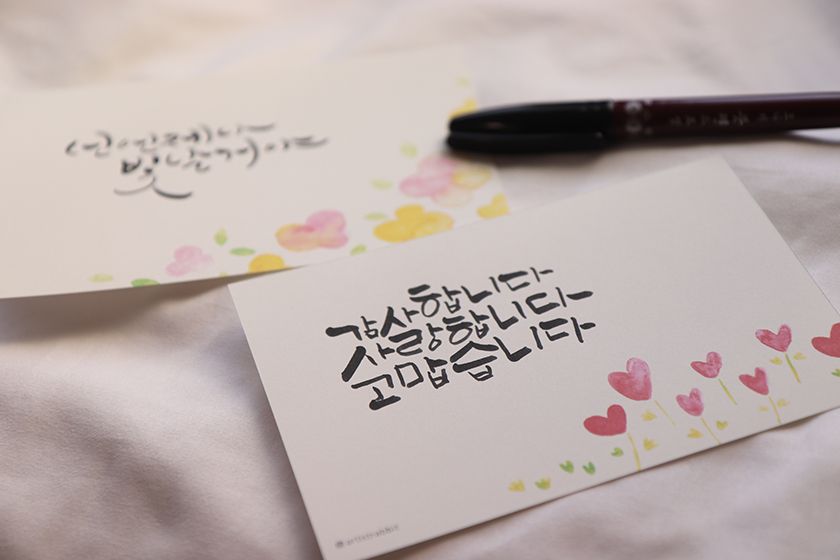 넌 언제나
빛날 거야
감사합니다
사랑합니다
고맙습니다